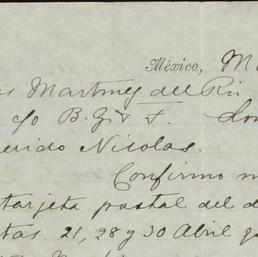 México, M
s Martinez del Rio
c/o B. G. & F. Lon
uerido Nicolas.
Confirmo m
tarjeta postal del d
tas 21, 28 y 30 Abril q